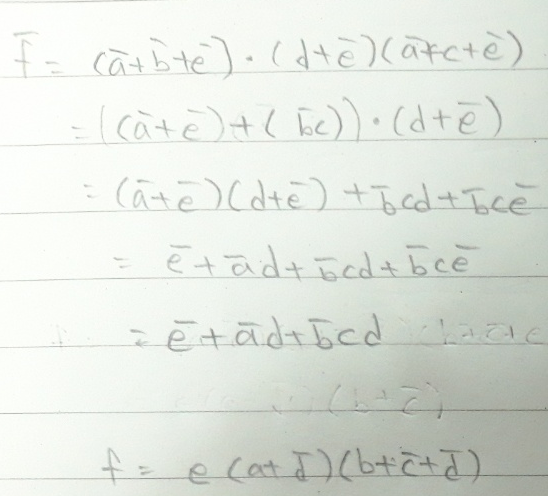 f̅ = (a̅+b̅+e̅)·(d+e̅)(a̅+c+e̅)
= ((a̅+e̅)+(b̅c))·(d+e̅)
= (a̅+e̅)(d+e̅)+b̅cd+b̅ce̅
= e̅+a̅d+b̅cd+b̅ce̅
= e̅+a̅d+b̅cd
(b+c̅)
f = e(a+d̅)(b+c̅+d̅)